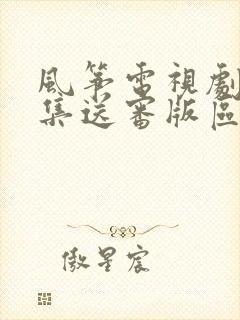 風箏電視劇
集送審版區
傲星宸